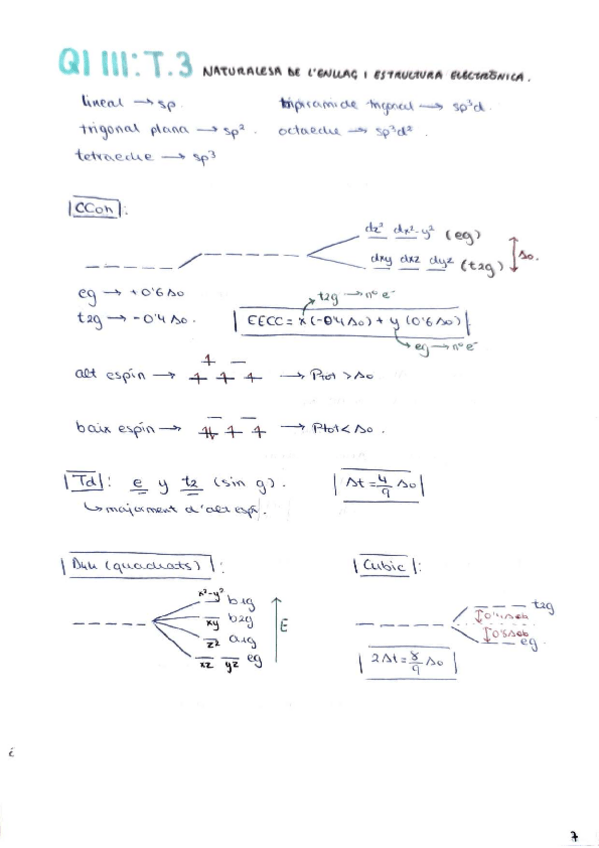 QI III: T.3 NATURALESA DE L'ENLLAÇ I ESTRUCTURA ELECTRÒNICA.
lineal → sp. bipiramide trigonal → sp³d.
trigonal plana → sp². octaedre → sp³d².
tetraedre → sp³
CCoh:
dz² dx²-y² (eg)
dxy dxz dyz (t2g) Δo.
eg → +0'6 Δo
t2g → nº e⁻
t2g → -0'4 Δo. EECC = x(-0'4 Δo) + y(0'6 Δo)
eg → nº e⁻
alt espín → → Ptot > Δo
baix espín → → Ptot < Δo.
Td: e y t2 (sin g). Δt = 4/9 Δo
↳ majorment d'alt espí.
D4h (quadrats): Cubic:
x²-y² b1g
xy b2g
z² a1g
xz yz eg
E
t2g
eg
2Δt = 8/9 Δo
7